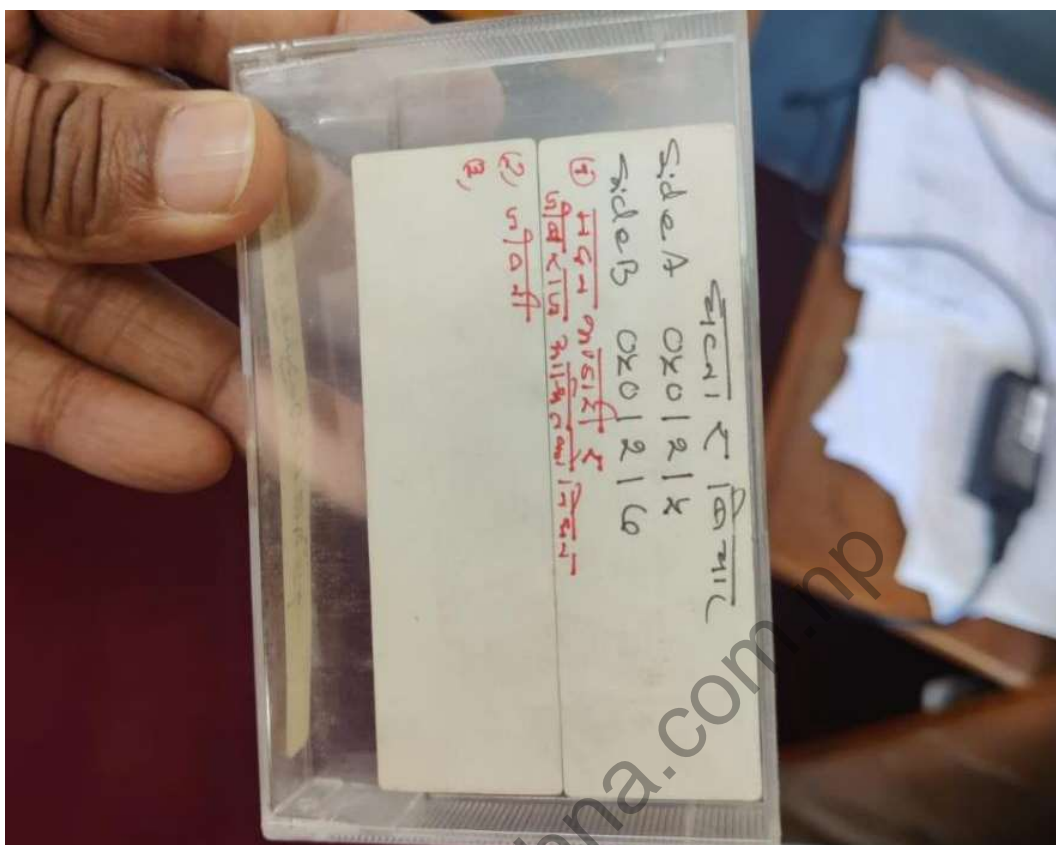 घटना र विचार
Side A ०५०।२।५
Side B ०५०।२।७
(१) मदन भण्डारी र
जीवराज आश्रितको निधन
(२)
(३)